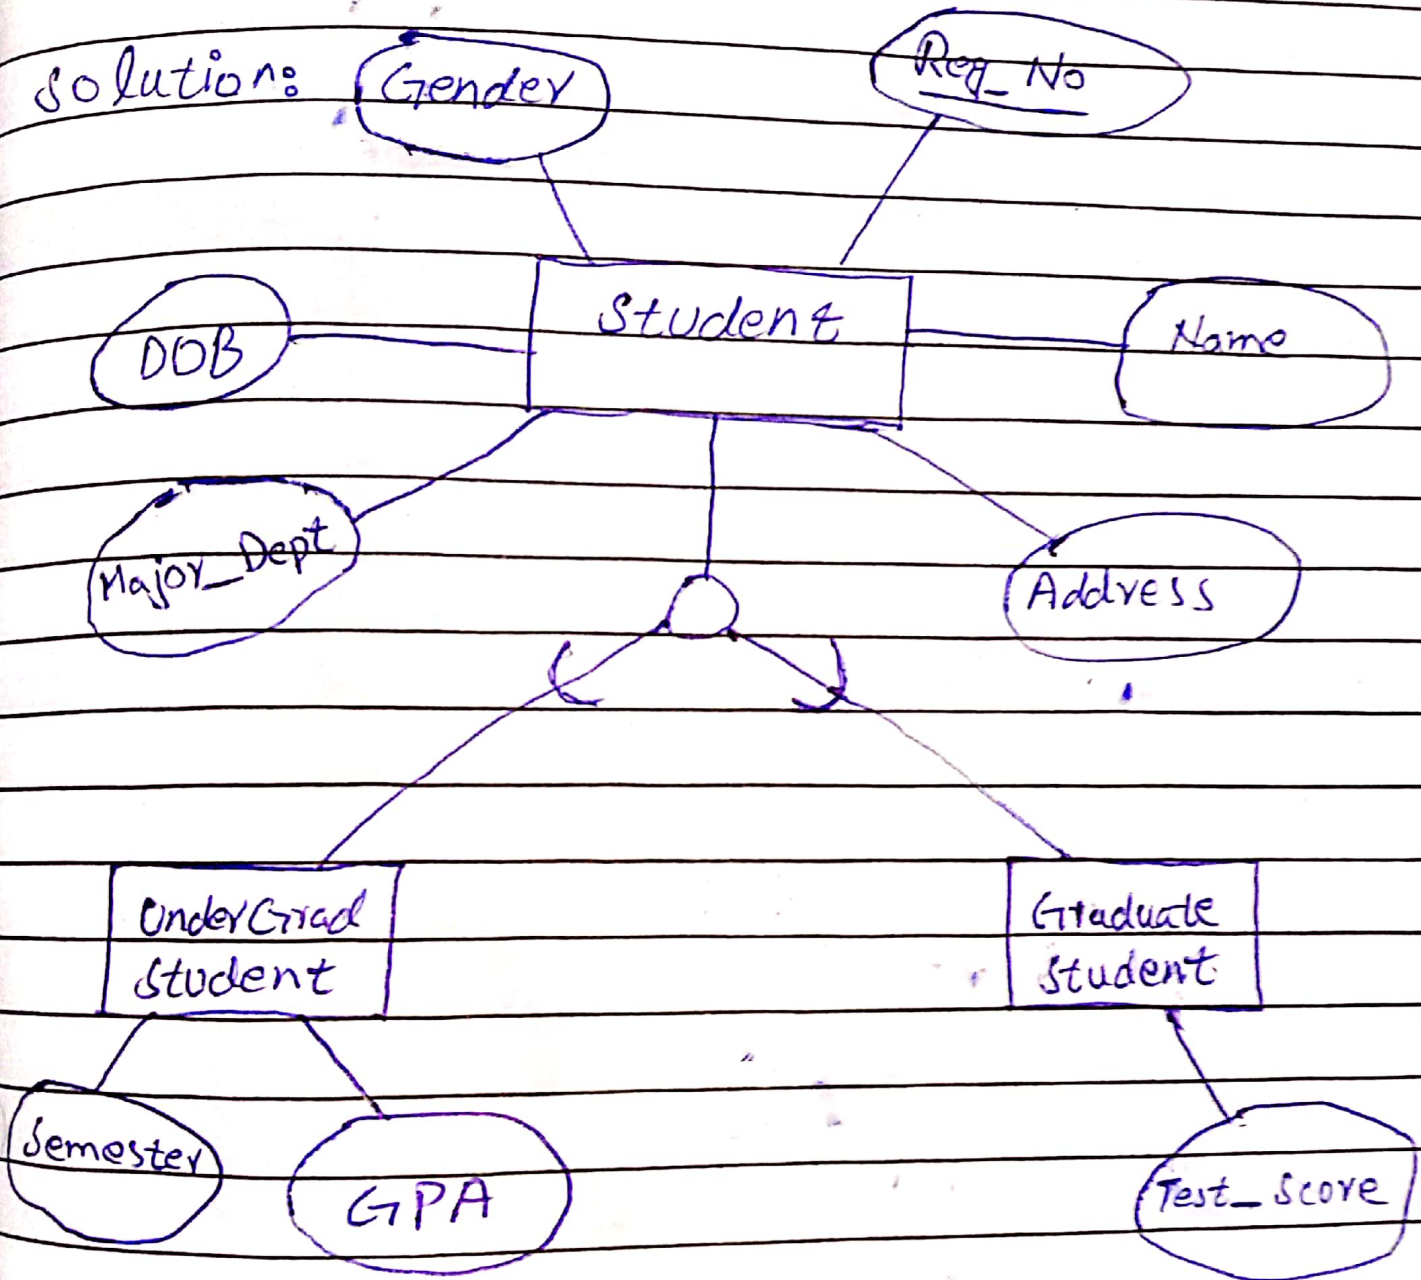 Solution:
Gender
Reg_No
Student
DOB
Name
Major_Dept
Address
UnderGrad
Student
Graduate
Student
Semester
GPA
Test_Score